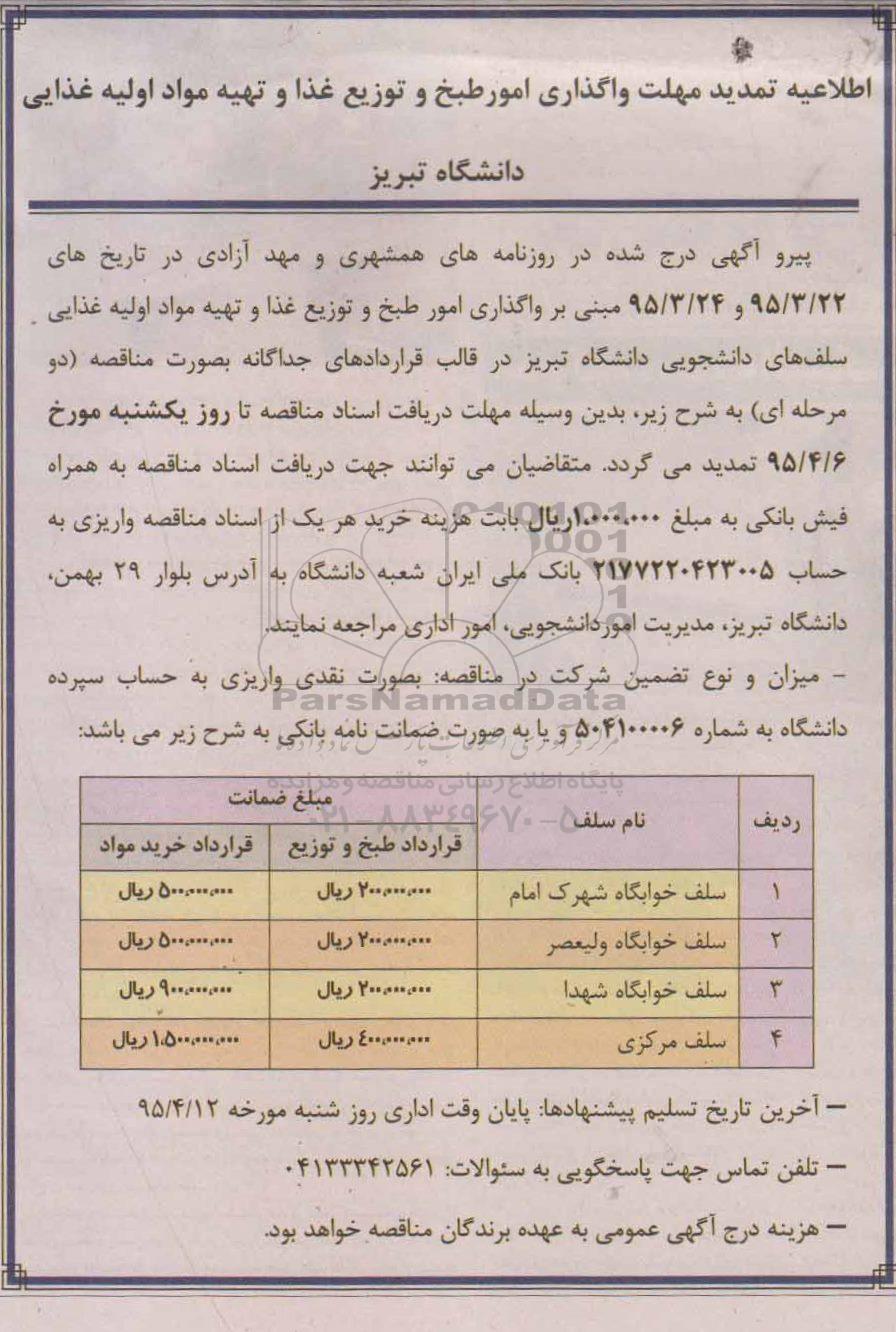 اطلاعیه تمدید مهلت واگذاری امورطبخ و توزیع غذا و تهیه مواد اولیه غذایی
دانشگاه تبریز
پیرو آگهی درج شده در روزنامه های همشهری و مهد آزادی در تاریخ های
۹۵/۳/۲۲ و ۹۵/۳/۲۴ مبنی بر واگذاری امور طبخ و توزیع غذا و تهیه مواد اولیه غذایی
سلف‌های دانشجویی دانشگاه تبریز در قالب قراردادهای جداگانه بصورت مناقصه (دو
مرحله ای) به شرح زیر، بدین وسیله مهلت دریافت اسناد مناقصه تا روز یکشنبه مورخ
۹۵/۴/۶ تمدید می گردد. متقاضیان می توانند جهت دریافت اسناد مناقصه به همراه
فیش بانکی به مبلغ ۱،۰۰۰،۰۰۰ریال بابت هزینه خرید هر یک از اسناد مناقصه واریزی به
حساب ۲۱۷۷۲۲۰۴۲۳۰۰۵ بانک ملی ایران شعبه دانشگاه به آدرس بلوار ۲۹ بهمن،
دانشگاه تبریز، مدیریت اموردانشجویی، امور اداری مراجعه نمایند.
- میزان و نوع تضمین شرکت در مناقصه: بصورت نقدی واریزی به حساب سپرده
ParsNamadData
دانشگاه به شماره ۵۰۴۱۰۰۰۰۶ و یا به صورت ضمانت نامه بانکی به شرح زیر می باشد:
پایگاه اطلاع رسانی مناقصه و مزایده
۰۲۱-۸۸۳۴۹۶۷۰-۵
ردیف نام سلف مبلغ ضمانت
قرارداد طبخ و توزیع قرارداد خرید مواد
۱ سلف خوابگاه شهرک امام ۲۰۰،۰۰۰،۰۰۰ ریال ۵۰۰،۰۰۰،۰۰۰ ریال
۲ سلف خوابگاه ولیعصر ۲۰۰،۰۰۰،۰۰۰ ریال ۵۰۰،۰۰۰،۰۰۰ ریال
۳ سلف خوابگاه شهدا ۲۰۰،۰۰۰،۰۰۰ ریال ۹۰۰،۰۰۰،۰۰۰ ریال
۴ سلف مرکزی ٤۰۰،۰۰۰،۰۰۰ ریال ۱،۵۰۰،۰۰۰،۰۰۰ ریال
– آخرین تاریخ تسلیم پیشنهادها: پایان وقت اداری روز شنبه مورخه ۹۵/۴/۱۲
– تلفن تماس جهت پاسخگویی به سئوالات: ۰۴۱۳۳۳۴۲۵۶۱
– هزینه درج آگهی عمومی به عهده برندگان مناقصه خواهد بود.